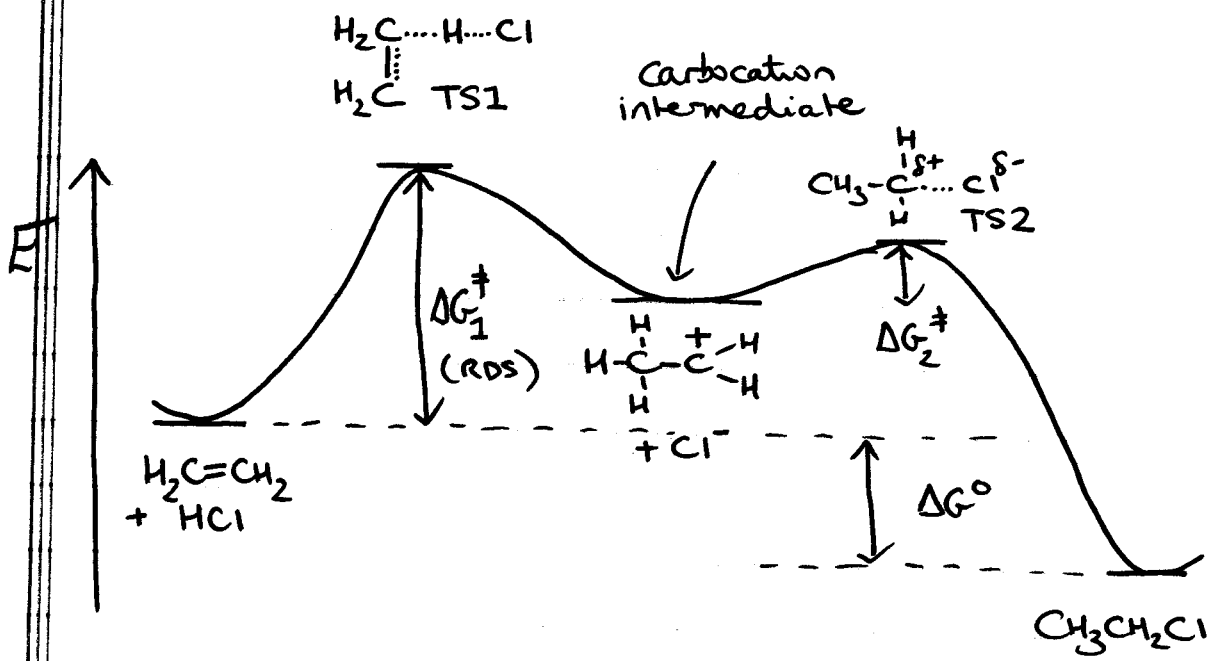 H₂C····H····Cl
H₂C TS1
Carbocation
intermediate
H
CH₃-C····Cl
δ+ δ-
H
TS2
E
ΔG₁‡
(RDS)
ΔG₂‡
H
H-C-C
+
H
H
H
+ Cl⁻
H₂C=CH₂
+ HCl
ΔG°
CH₃CH₂Cl